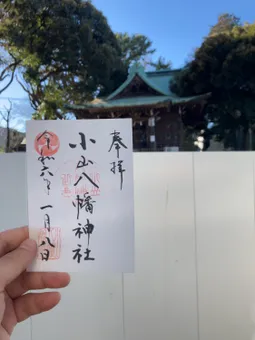 奉拝
小山八幡神社
令和六年一月八日